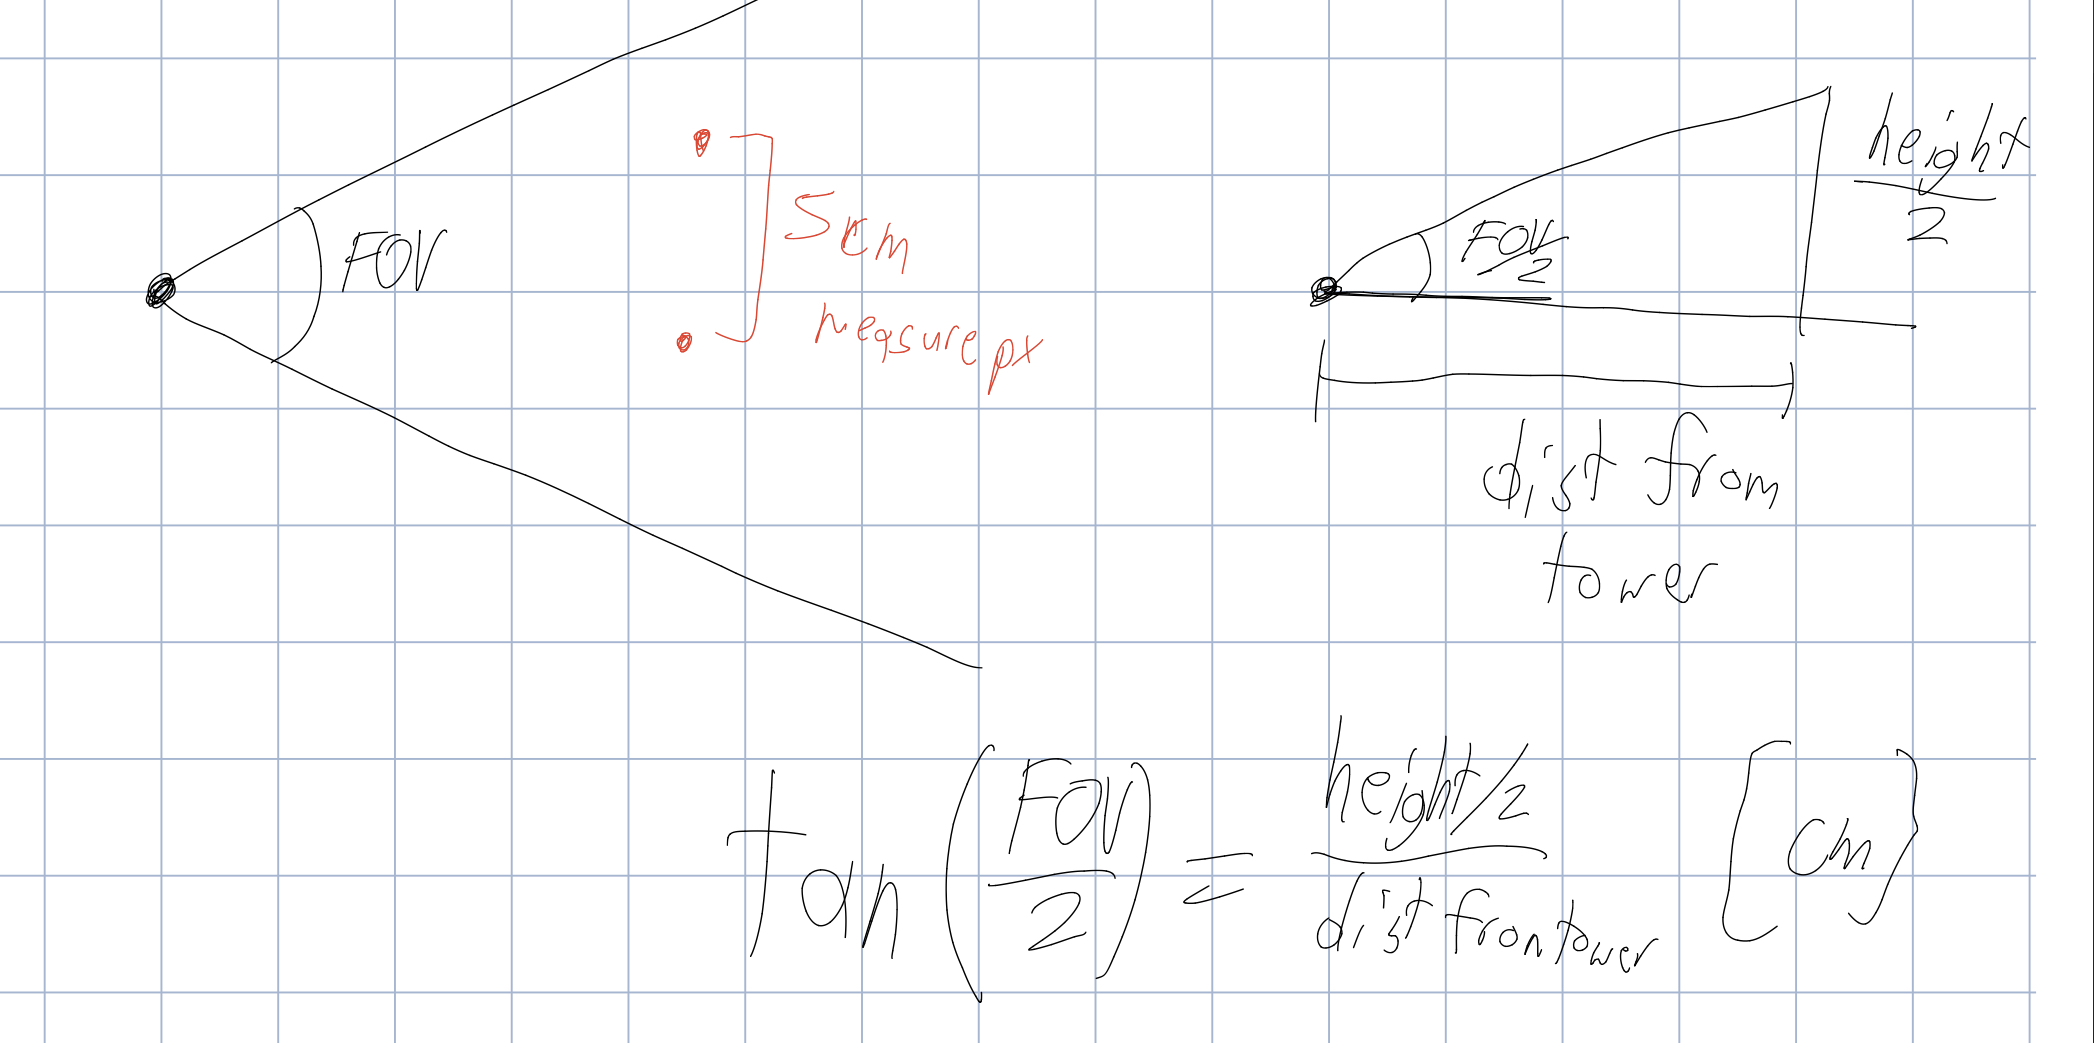 FOV
5cm
measure px
FOV/2
height
2
dist from
tower
tan(FOV/2) = height/2 / dist from tower [cm]